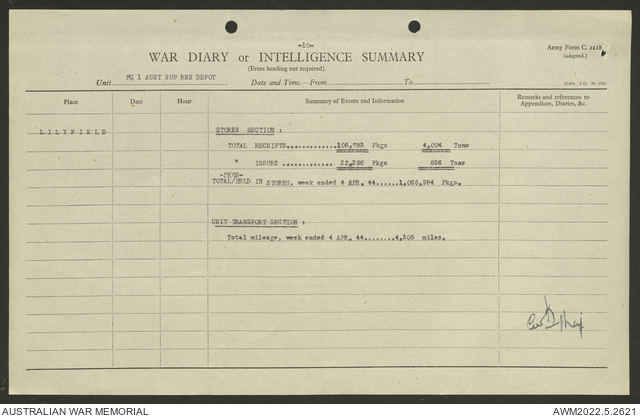 -10-
WAR DIARY or INTELLIGENCE SUMMARY
(Erase heading not required).
Army Form C. 2118
(adapted.)
Unit HQ 1 AUST SUP RES DEPOT Date and Time.—From To
Place Date Hour Summary of Events and Information Remarks and references to
Appendices, Diaries, &c.
LILYFIELD STORES SECTION :
TOTAL RECEIPTS............. 106,783 Pkgs 4,004 Tons
" ISSUES ............. 22,296 Pkgs 836 Tons
-PKGS-
TOTAL/HELD IN STORES, week ended 4 APR. 44......1,065,984 Pkgs.
UNIT TRANSPORT SECTION :
Total mileage, week ended 4 APR. 44........4,306 miles.
AUSTRALIAN WAR MEMORIAL AWM2022.5.2621